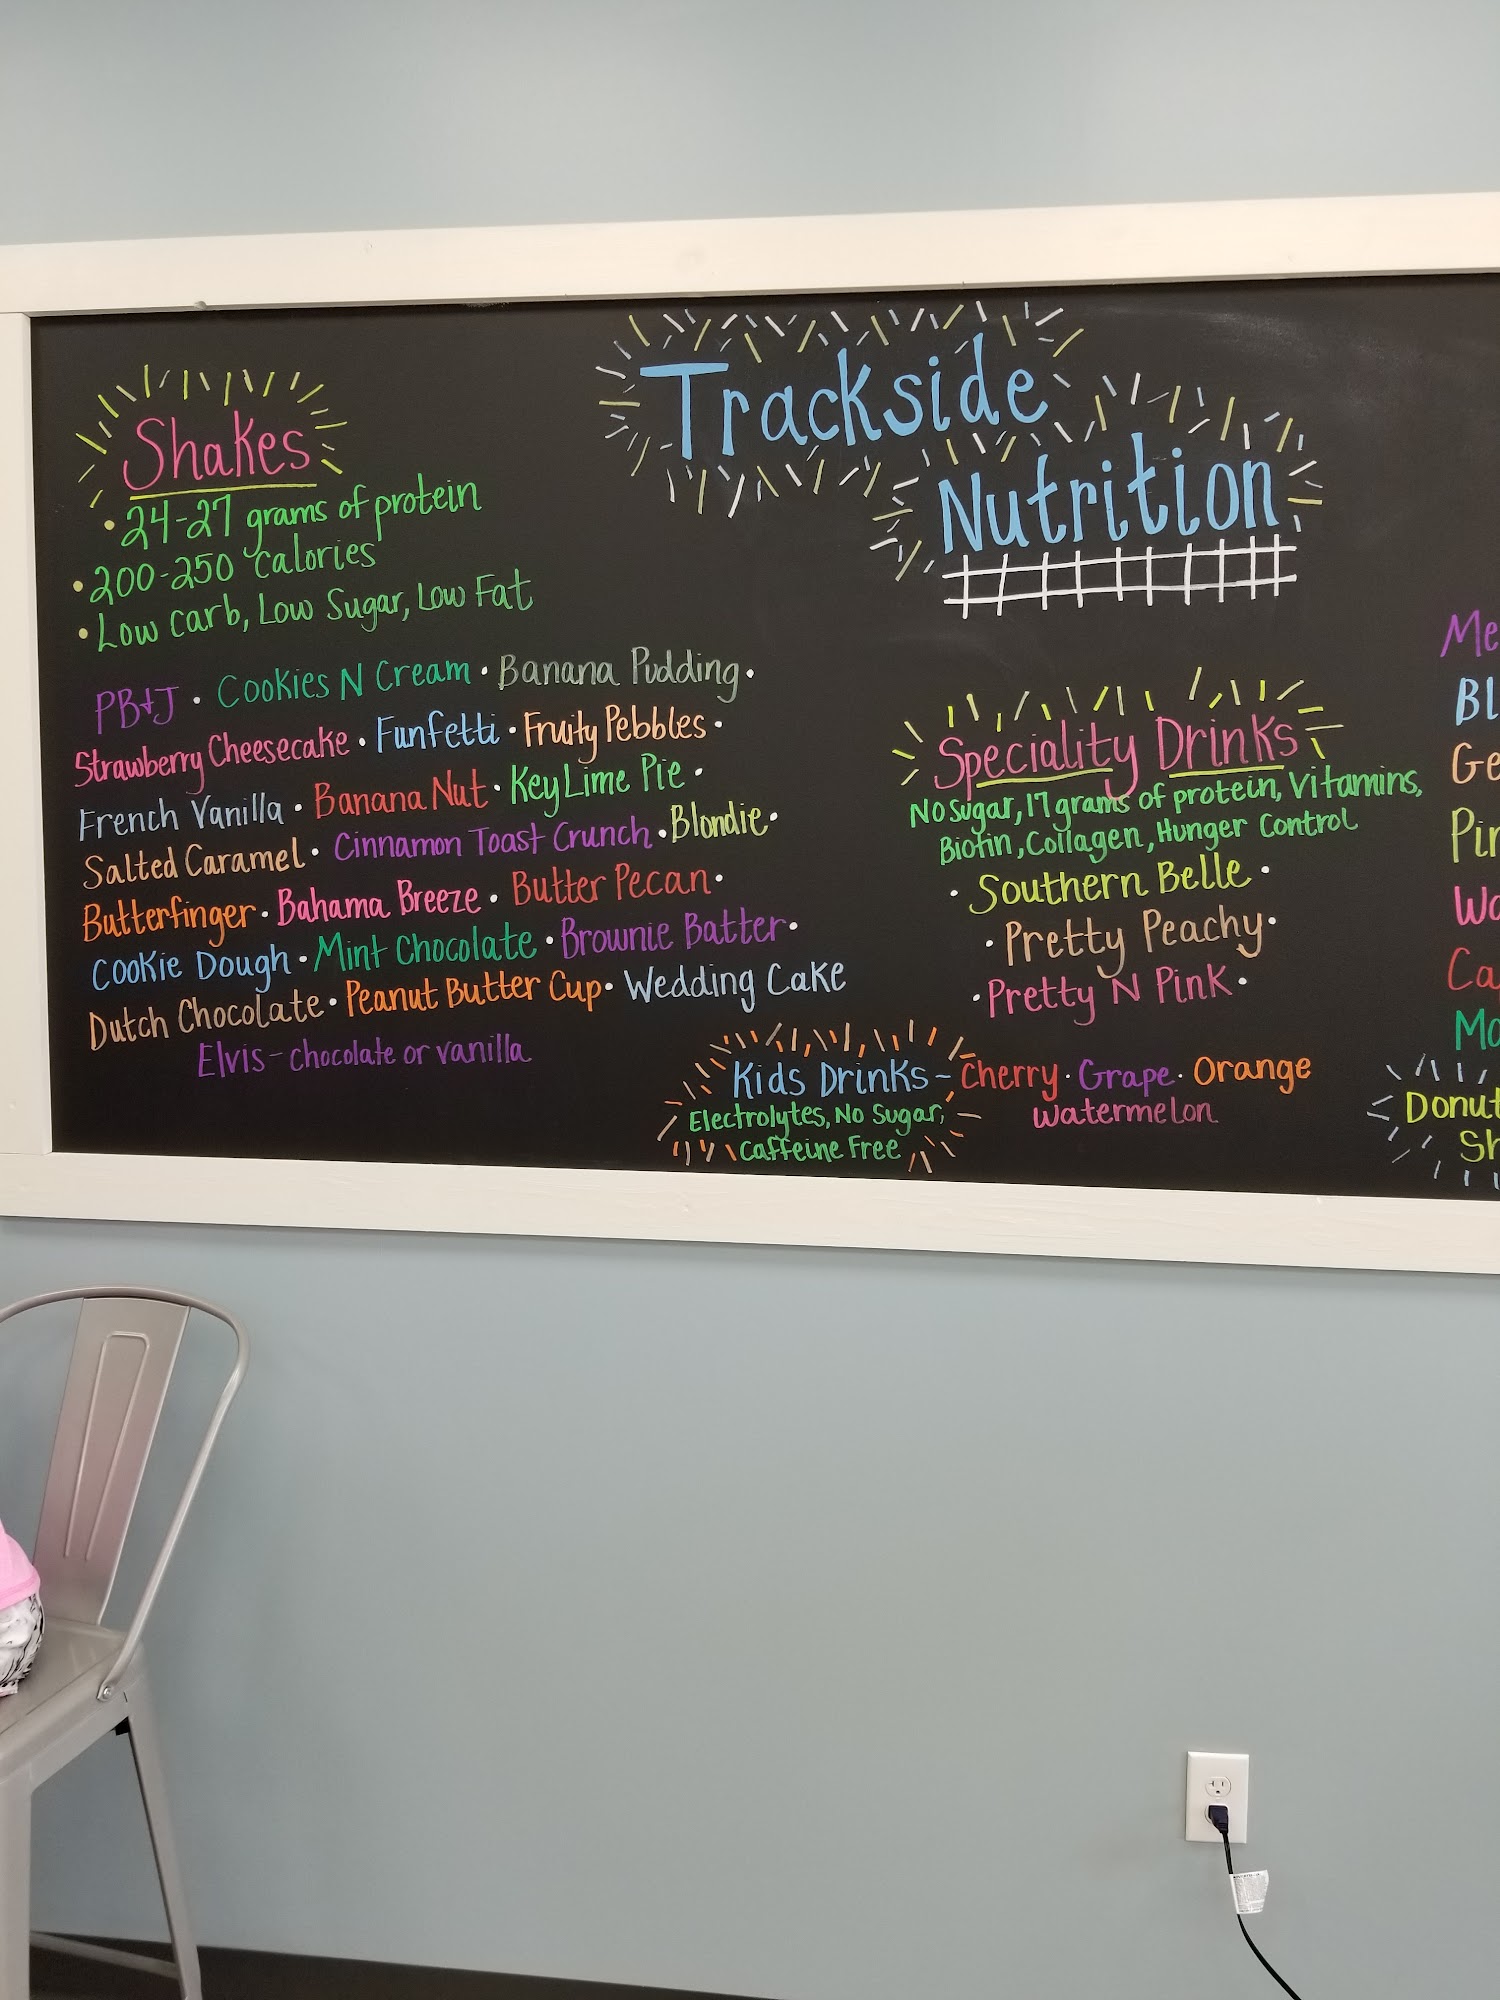 Trackside
Nutrition
Shakes
• 24-27 grams of protein
• 200-250 calories
• Low carb, Low Sugar, Low Fat
PB&J • Cookies N Cream • Banana Pudding •
Strawberry Cheesecake • Funfetti • Fruity Pebbles •
French Vanilla • Banana Nut • Key Lime Pie •
Salted Caramel • Cinnamon Toast Crunch • Blondie •
Butterfinger • Bahama Breeze • Butter Pecan •
Cookie Dough • Mint Chocolate • Brownie Batter •
Dutch Chocolate • Peanut Butter Cup • Wedding Cake
Elvis - chocolate or vanilla
Speciality Drinks
No Sugar, 17 grams of protein, Vitamins,
Biotin, Collagen, Hunger Control
• Southern Belle •
• Pretty Peachy •
• Pretty N Pink •
Kids Drinks - Cherry • Grape • Orange
Watermelon
Electrolytes, No Sugar,
Caffeine Free
Me
Bl
Ge
Pin
Wa
Ca
Mo
Donut
Sh